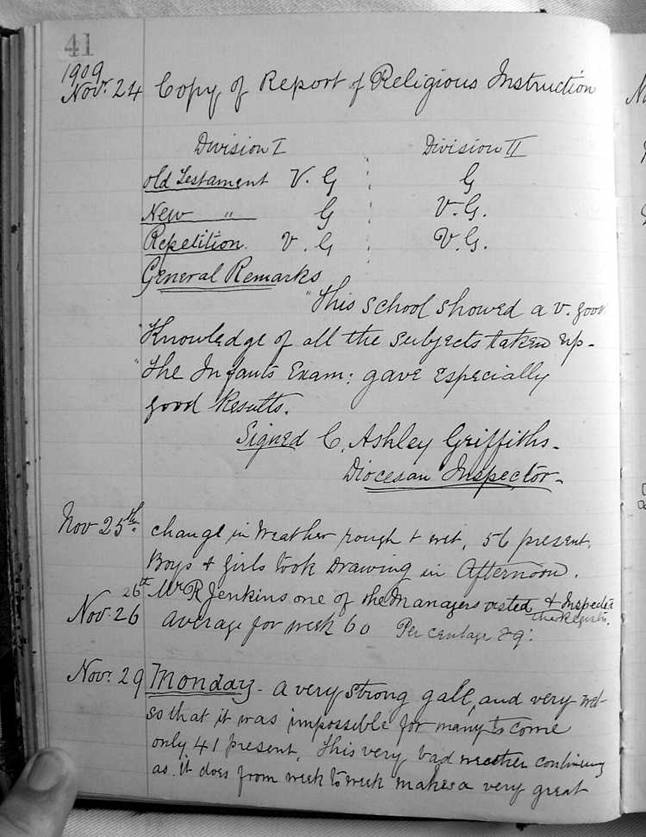 41
1909
Nov. 24 Copy of Report of Religious Instruction
Division I Division II
Old Testament V. G : G
New " G : V.G.
Repetition. V. G : V.G.
General Remarks
"This school showed a v. good
"Knowledge of all the subjects taken up -
"The Infants Exam: gave especially
good Results.
Signed C. Ashley Griffiths -
Diocesan Inspector -
Nov 25th. change in weather rough & wet, 56 present.
Boys & girls took Drawing in Afternoon.
26th Mr R Jenkins one of the Managers visited & Inspected
the Registers.
Nov. 26 Average for week 60 Per centage
Nov. 29 Monday - A very strong gale, and very wet
so that it was impossible for many to come
only 41 present. This very bad weather continuing
as it does from week to week makes a very great